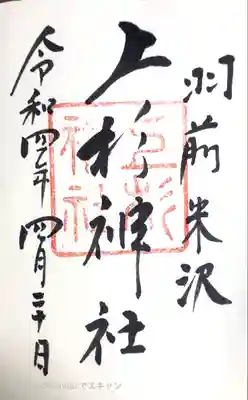 羽前米沢
上杉神社
上杉神社
令和四年四月二十日
でスキャン